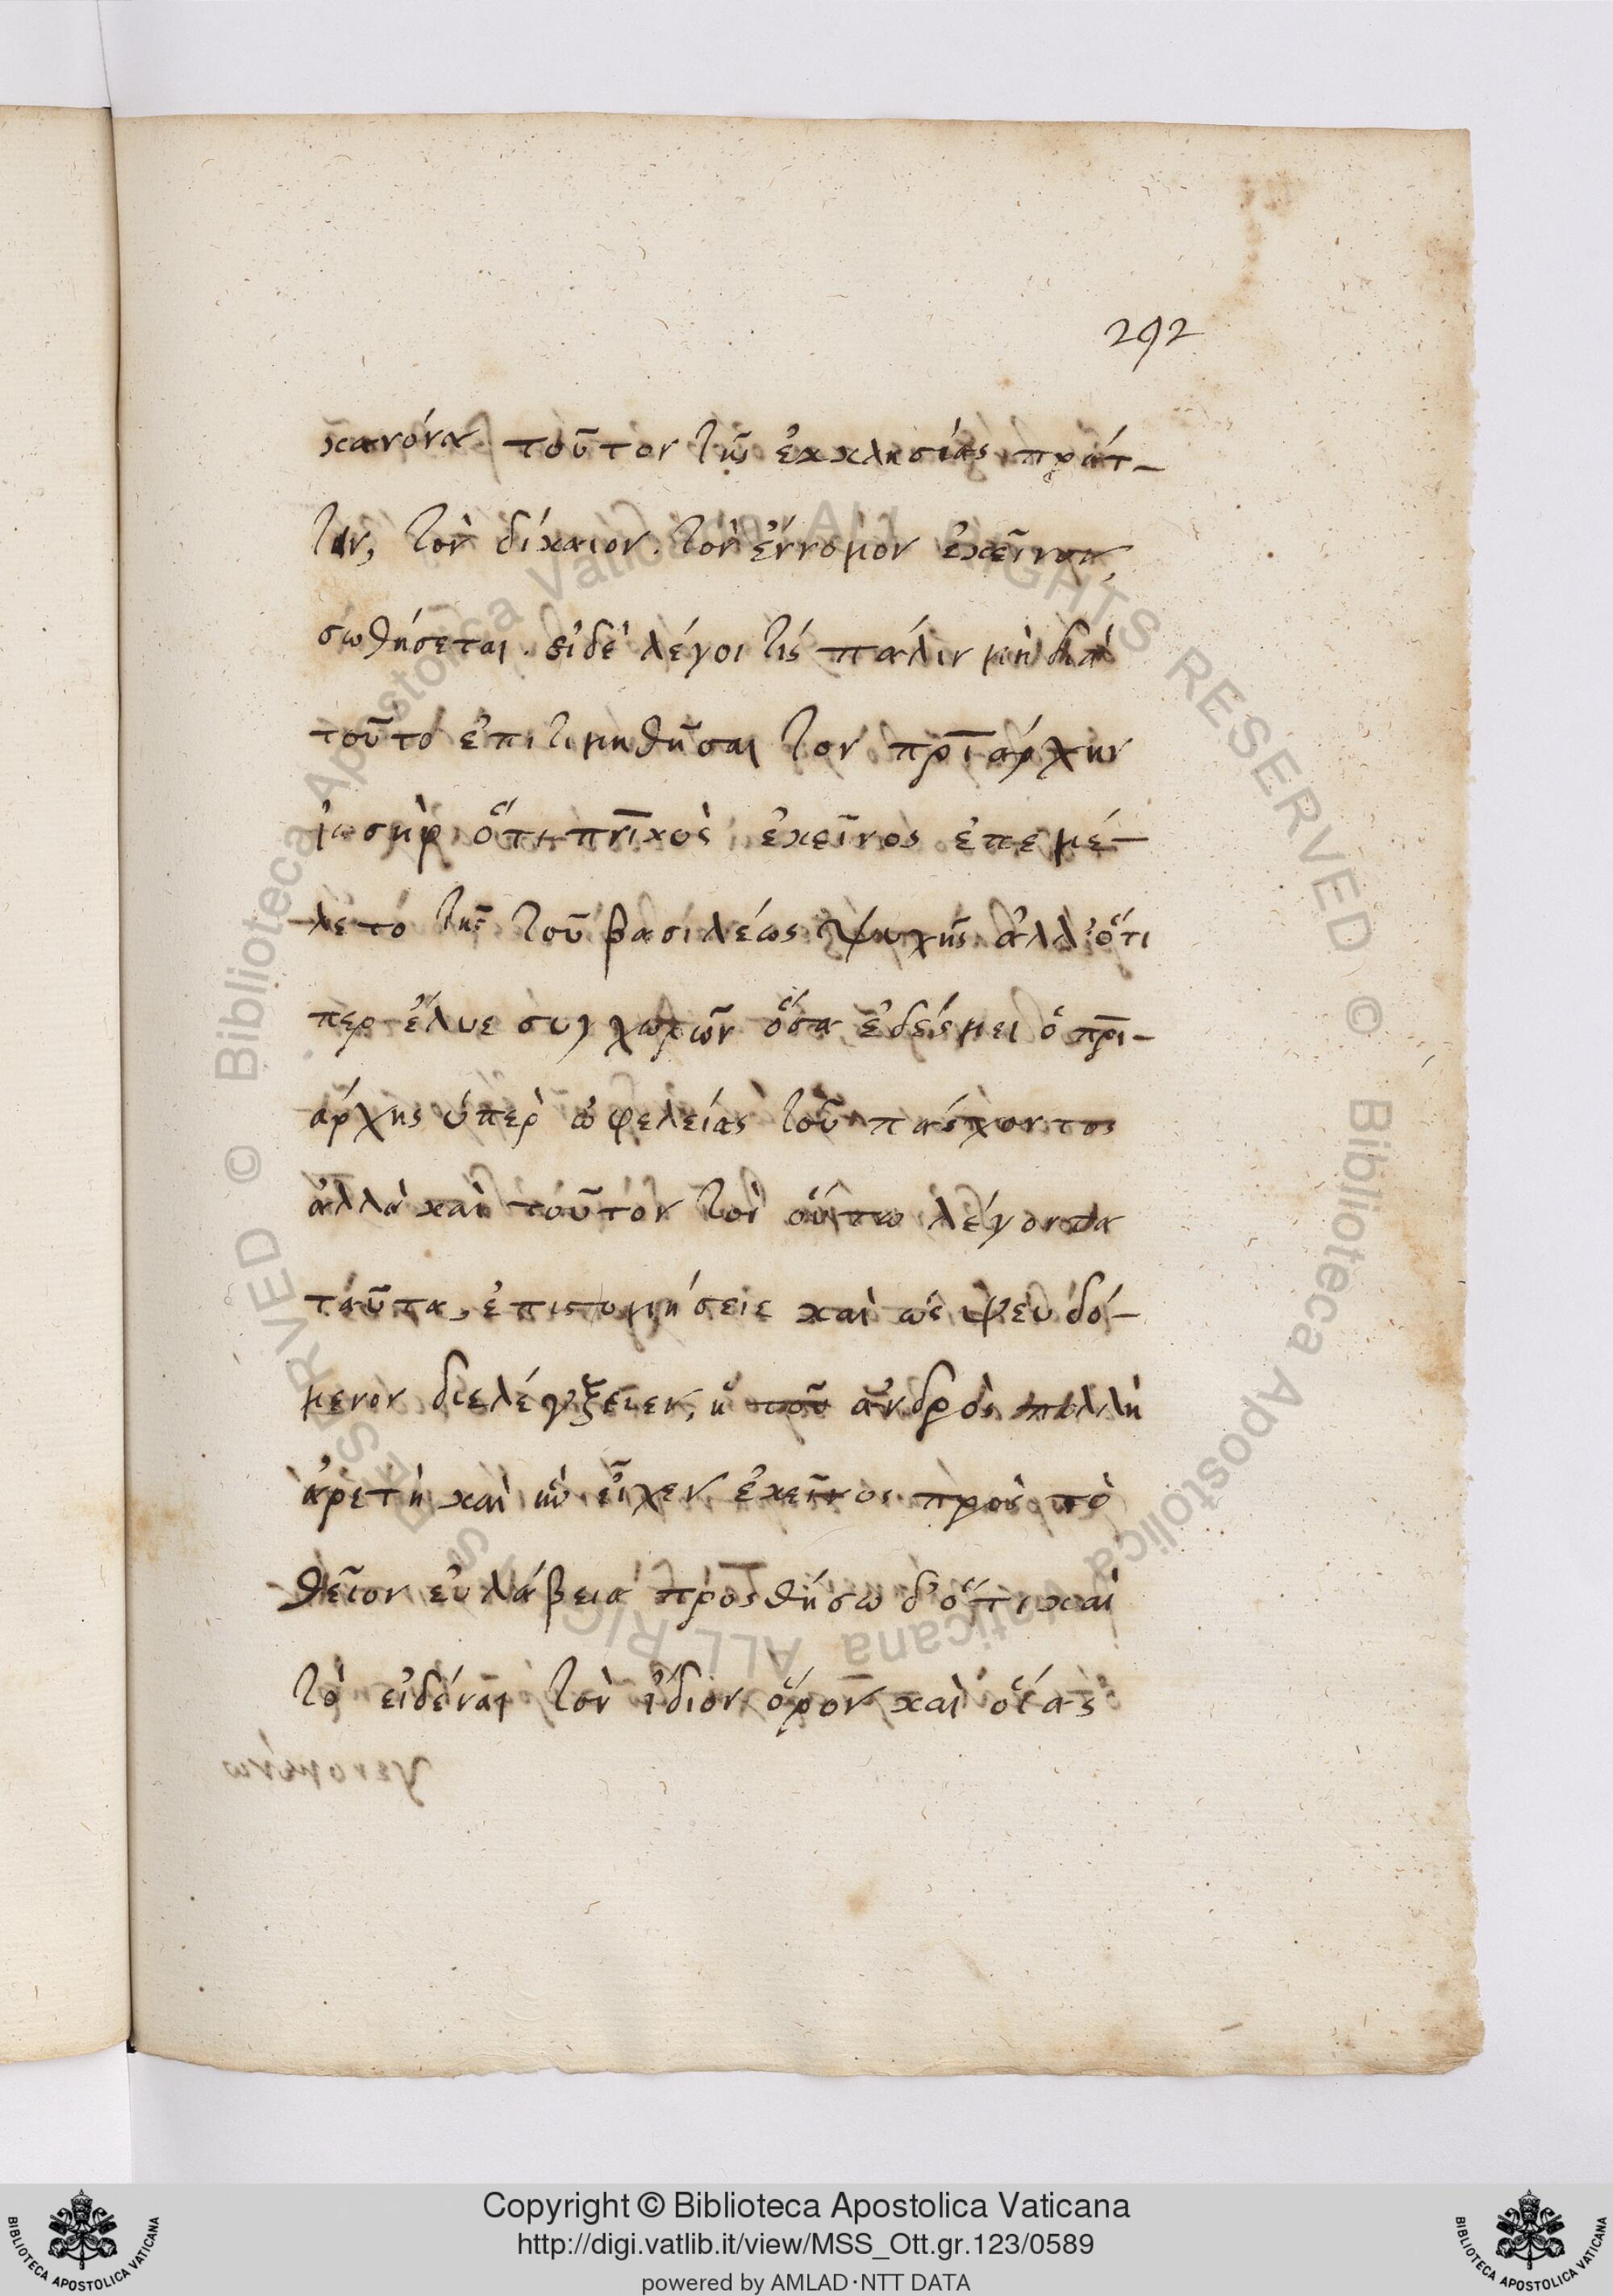 292
κανόνα τοῦτον τῆς ἐκκλησίας πράτ-
των, τὸν δίκαιον. τὸν ἔννομον ἐκεῖνον
σωθήσεται. εἰδὲ λέγοι τίς πάλιν μὴ διὰ
τοῦτο ἐπιτιμηθῆσαι τὸν πρῑάρχην
ἰωσὴφ ὅτι πρῑκὸς ἐκεῖνος ἐπεμέ-
λετο τῆς τοῦ βασιλέως ψυχῆς ἀλλ' ὅτι
περ ἔλυε συγχωρῶν ὅσα ἐδέσμει ὁ πρῑ-
άρχης ὑπὲρ ὠφελείας τοῦ πάσχοντος
ἀλλὰ καὶ τοῦτον τὸν οὕτω λέγοντα
ταῦτα, ἐπιστομήσειε καὶ ὡς ψευδό-
μενον διελέγξειεν, ἡ τοῦ ἀνδρὸς πολλὴ
ἀρετὴ καὶ ἣν εἶχεν ἐκεῖνος πρὸς τὸ
θεῖον εὐλάβεια προσθήσω δ' ὅτι καὶ
τὸ εἰδέναι τὸν ἴδιον ὅρον καὶ οἵας
Copyright © Biblioteca Apostolica Vaticana
http://digi.vatlib.it/view/MSS_Ott.gr.123/0589
powered by AMLAD·NTT DATA
BIBLIOTECA APOSTOLICA VATICANA
BIBLIOTECA APOSTOLICA VATICANA